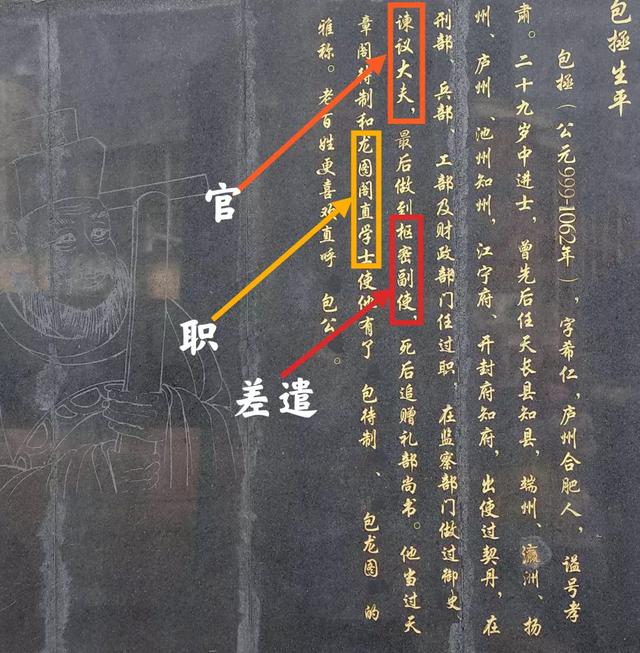 包拯生平
包拯(公元999-1062年),字希仁,庐州合肥人,谥号孝
肃。二十九岁中进士,曾先后任天长县知县,端州、瀛洲、扬
州、庐州、池州知州,江宁府、开封府知府,出使过契丹,在
刑部、兵部、工部及财政部门任过职,在监察部门做过御史、
谏议大夫,最后做到枢密副使,死后追赠礼部尚书。他当过天
章阁待制和龙图阁直学士使他有了 包待制 、 包龙图 的
雅称。老百姓更喜欢直呼 包公 。
官
职
差遣